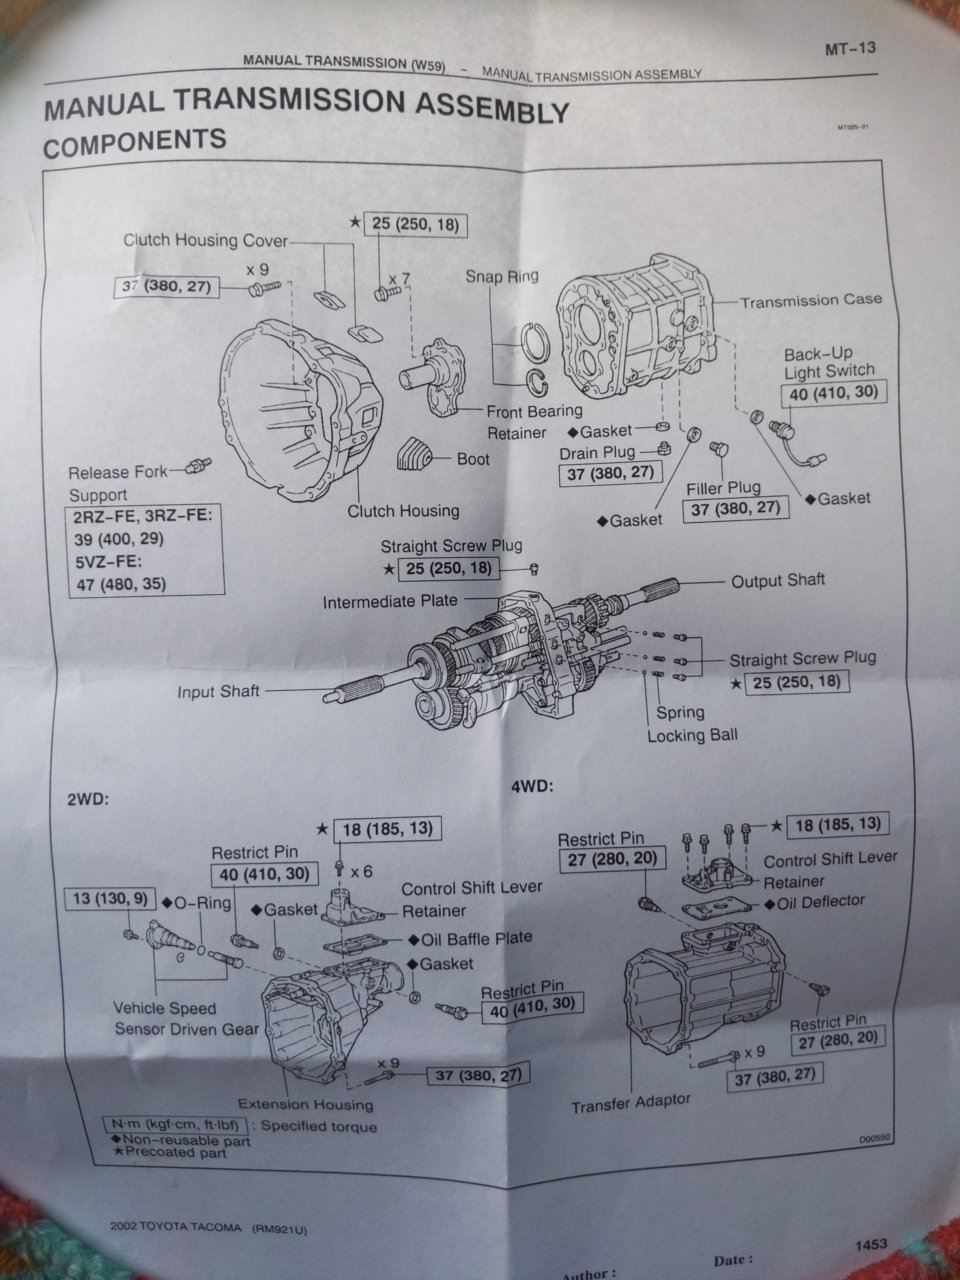 MT-13
MANUAL TRANSMISSION (W59) - MANUAL TRANSMISSION ASSEMBLY
MANUAL TRANSMISSION ASSEMBLY
COMPONENTS
MT025-01
★ 25 (250, 18)
Clutch Housing Cover
x 9
37 (380, 27)
x 7
Snap Ring
Transmission Case
Back-Up
Light Switch
40 (410, 30)
Front Bearing
Retainer
◆Gasket
Drain Plug
37 (380, 27)
Boot
Release Fork
Support
2RZ-FE, 3RZ-FE:
39 (400, 29)
5VZ-FE:
47 (480, 35)
Clutch Housing
Filler Plug
37 (380, 27)
◆Gasket
◆Gasket
Straight Screw Plug
★ 25 (250, 18)
Intermediate Plate
Output Shaft
Input Shaft
Straight Screw Plug
★ 25 (250, 18)
Spring
Locking Ball
2WD:
★ 18 (185, 13)
Restrict Pin
40 (410, 30)
x 6
13 (130, 9)
◆O-Ring
◆Gasket
Control Shift Lever
Retainer
◆Oil Baffle Plate
◆Gasket
Vehicle Speed
Sensor Driven Gear
Restrict Pin
40 (410, 30)
x 9
37 (380, 27)
Extension Housing
4WD:
★ 18 (185, 13)
Restrict Pin
27 (280, 20)
Control Shift Lever
Retainer
◆Oil Deflector
Restrict Pin
27 (280, 20)
x 9
37 (380, 27)
Transfer Adaptor
N·m (kgf·cm, ft·lbf) : Specified torque
◆Non-reusable part
★Precoated part
D00550
2002 TOYOTA TACOMA (RM921U)
Author :
Date :
1453